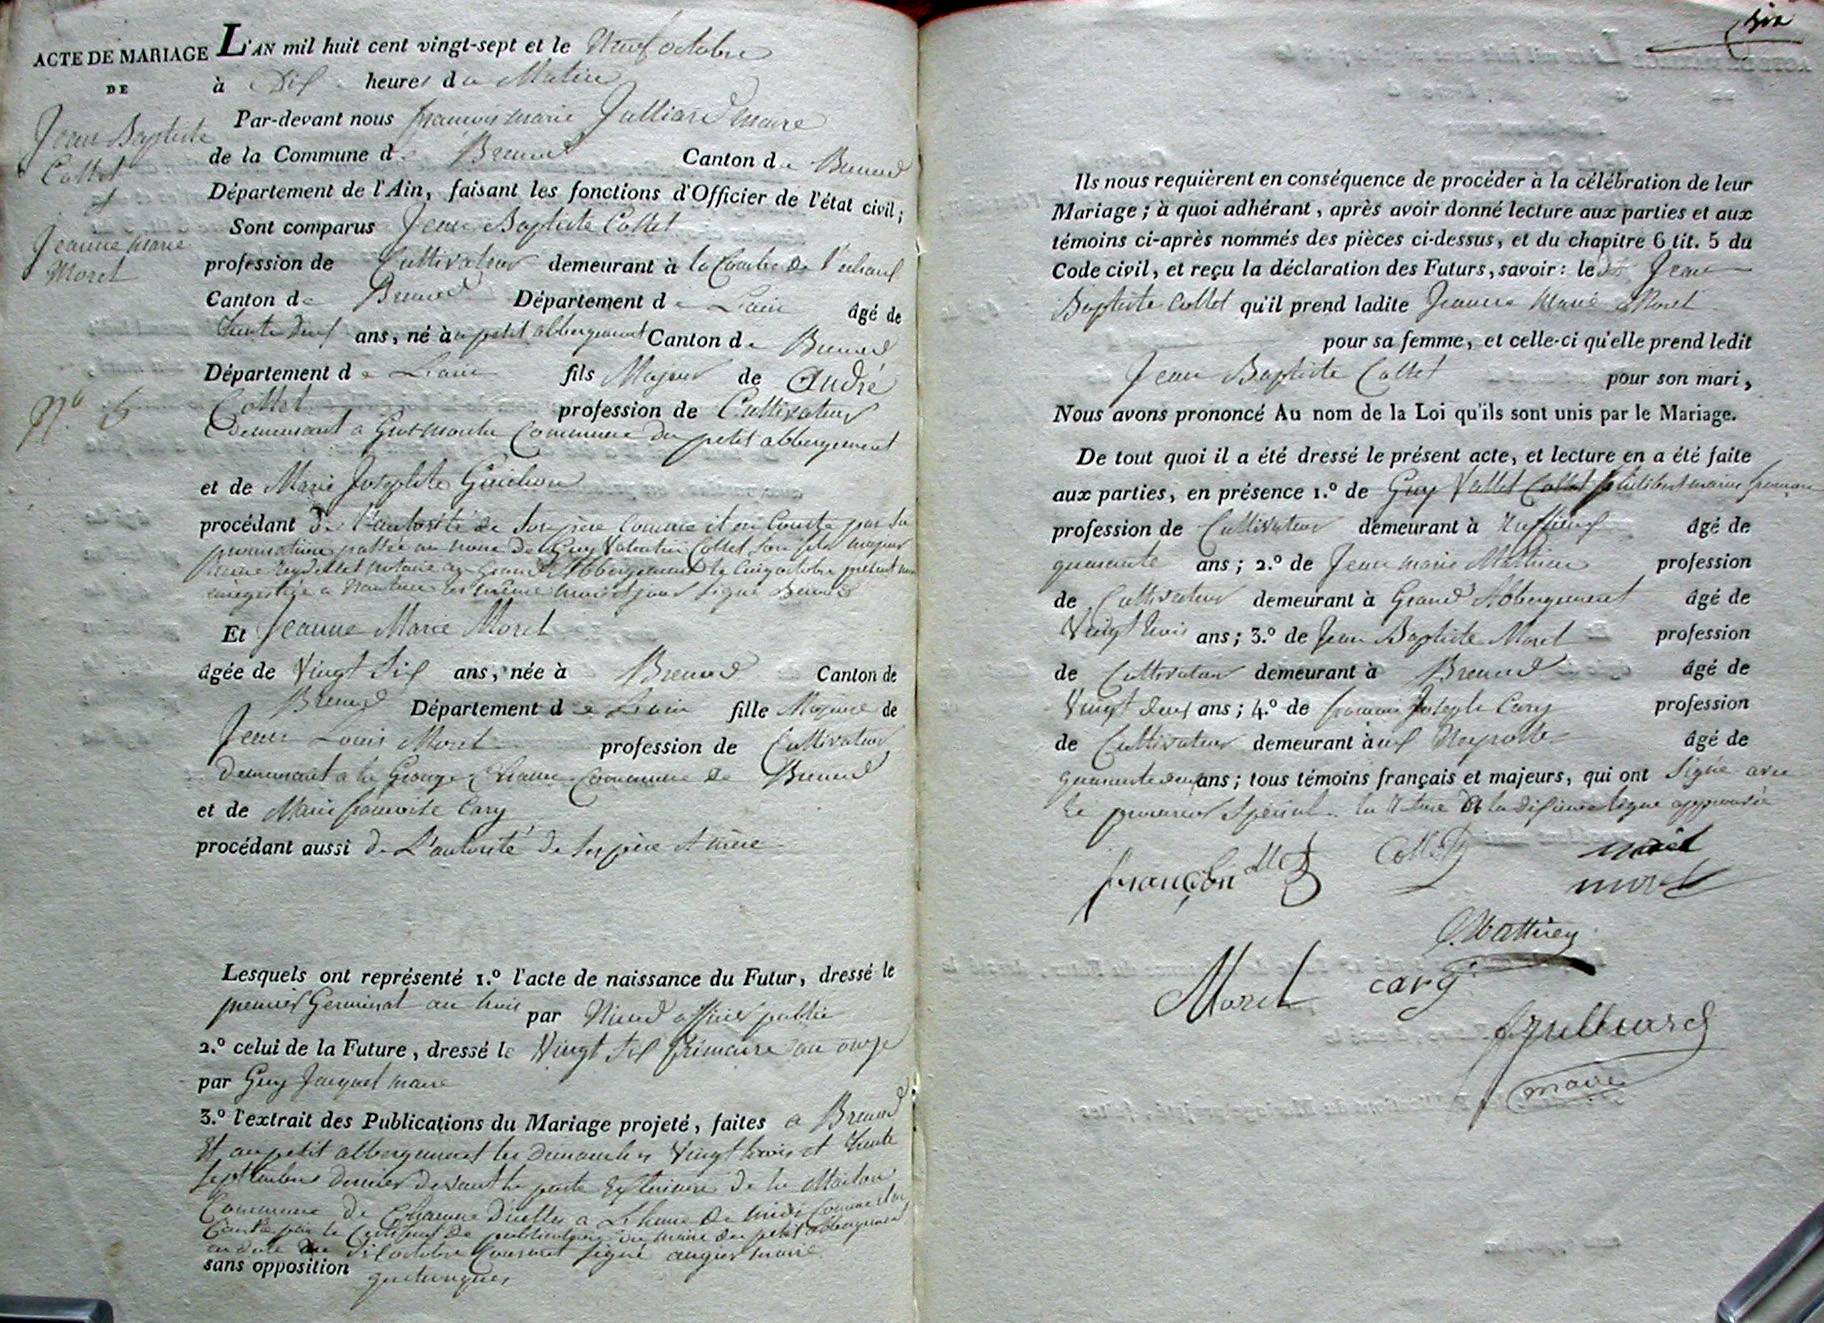 ACTE DE MARIAGE
DE
Jean Baptiste
Collet
et
Jeanne marie
Moret
N.º 6
L'AN mil huit cent vingt-sept et le Neuf octobre
à Dix heures du Matin
Par-devant nous françois marie Julliard maire
de la Commune de Brenod Canton de Brenod
Département de l'Ain, faisant les fonctions d'Officier de l'état civil;
Sont comparus Jean Baptiste Collet
profession de Cultivateur demeurant à la Combe de
Canton de Brenod Département de L'ain âgé de
trente deux ans, né au petit abbergement Canton de Brenod
Département de L'ain fils Majeur de André
Collet profession de Cultivateur
demeurant à Commune du petit abbergement
et de Marie Josephte Guichon
procédant de l'autorité de son père Comme il en Conste par sa
procuration passée au nom de Guy Valentin Collet son fils majeur
notaire au Grand Abbergement le Cinq octobre présent mois
enregistrée à Nantua les même mois et jour signé
Et Jeanne Marie Moret
âgée de Vingt Six ans, née à Brenod Canton de
Brenod Département de L'ain fille Majeure de
Jean Louis Moret profession de Cultivateur
demeurant à la Grange Commune de Brenod
et de Marie françoise Cary
procédant aussi de L'autorité de ses père et mère
Lesquels ont représenté 1.º l'acte de naissance du Futur, dressé le
premier Germinal an trois par officier public
2.º celui de la Future, dressé le Vingt Six frimaire an onze
par Guy Jacquet maire
3.º l'extrait des Publications du Mariage projeté, faites a Brenod
Et au petit abbergement les dimanches Vingt trois et trente
septembre dernier devant la porte Extérieure de la Maison
Commune de Chacune D'icelles a L'heure de midi Comme il en
Conste par le Certificat de publications du maire du petit abbergement
en date du Six octobre Courant signé maire
sans opposition quelconques
Ils nous requièrent en conséquence de procéder à la célébration de leur
Mariage; à quoi adhérant, après avoir donné lecture aux parties et aux
témoins ci-après nommés des pièces ci-dessus, et du chapitre 6 tit. 5 du
Code civil, et reçu la déclaration des Futurs, savoir: ledit Jean
Baptiste Collet qu'il prend ladite Jeanne Marie Moret
pour sa femme, et celle-ci qu'elle prend ledit
Jean Baptiste Collet pour son mari,
Nous avons prononcé Au nom de la Loi qu'ils sont unis par le Mariage.
De tout quoi il a été dressé le présent acte, et lecture en a été faite
aux parties, en présence 1.º de Guy Vallet Collet philibert marie françon
profession de Cultivateur demeurant à Ruffieux âgé de
quarante ans; 2.º de Jean marie Mathieu profession
de Cultivateur demeurant à Grand Abbergement âgé de
Vingt trois ans; 3.º de Jean Baptiste Moret profession
de Cultivateur demeurant à Brenod âgé de
Vingt deux ans; 4.º de françois Joseph Cary profession
de Cultivateur demeurant aux Neyrolles âgé de
quarante deux ans; tous témoins français et majeurs, qui ont signé avec
le procureur spécial la Rature de la dixième ligne approuvée
françon Collet moret
moret
Mathieu
Moret cary
Julliard
maire